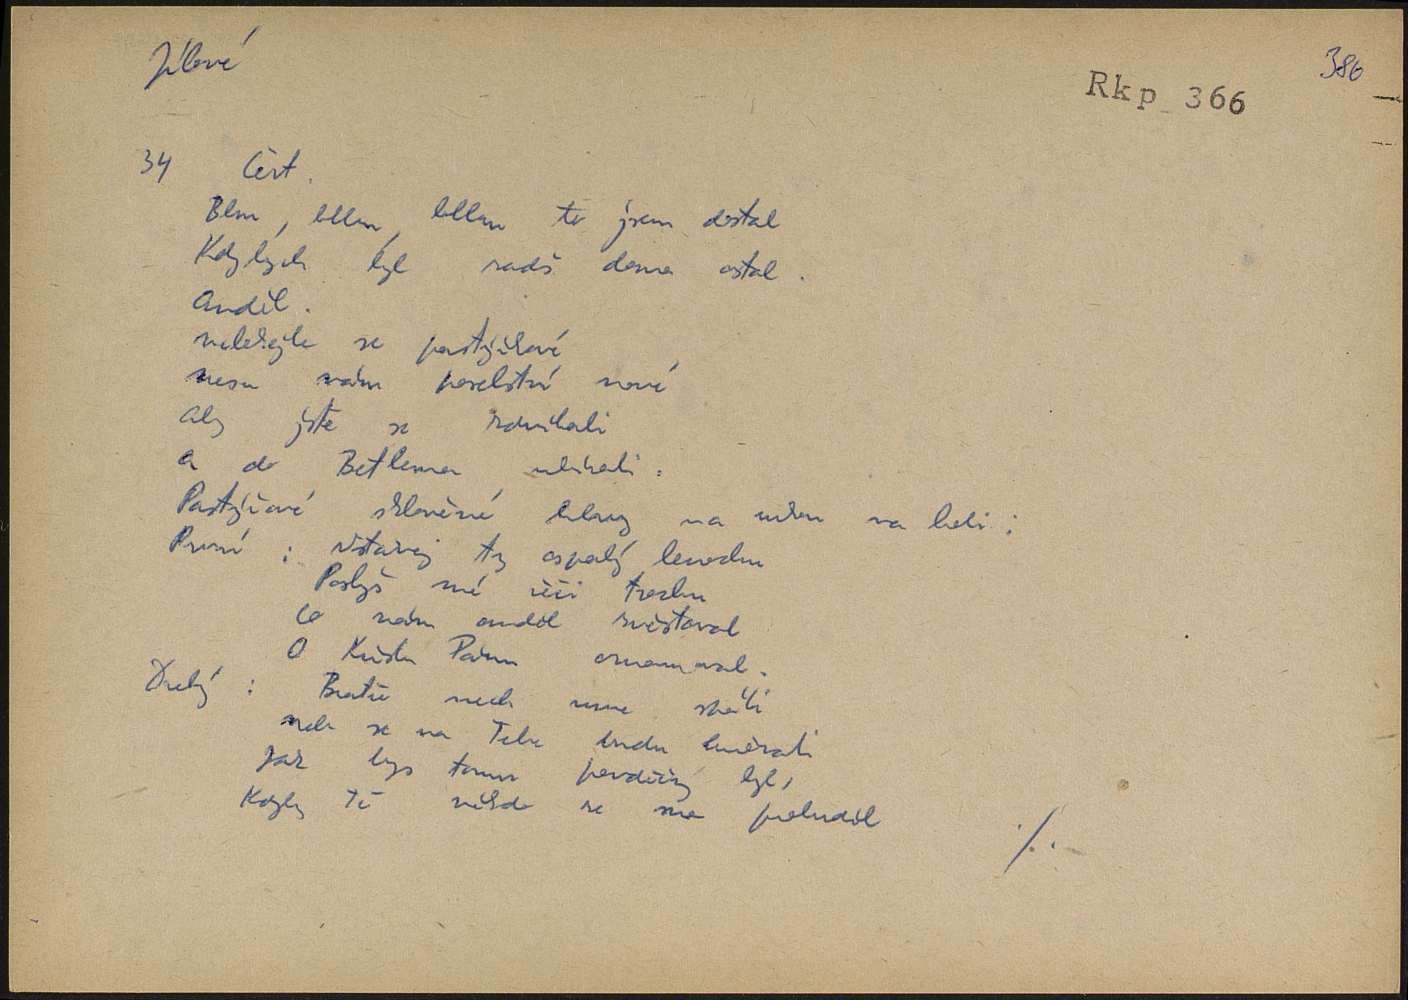 Jílové
386
Rkp 366
34 Čert.
Blm, bllm, bllm to jsem dostal
Kdybych byl radš doma ostal.
Anděl.
nelekejte se pastýřkové
nesu vám poselství nové
aby jste se
a do Betlema :
Pastýřové skloněné hlavy na na holi :
První : Vstávej ty ospalý lenochu
Poslyš mé řéči trochu
Co nám anděl zvěstoval
O Kristu Pánu oznamoval.
Druhý : Bratře nech mne spáti
neb se na Tebe budu hněvati
jak bys tomu povděčný byl,
Kdyby Tě někdo ze sna probudil
./.